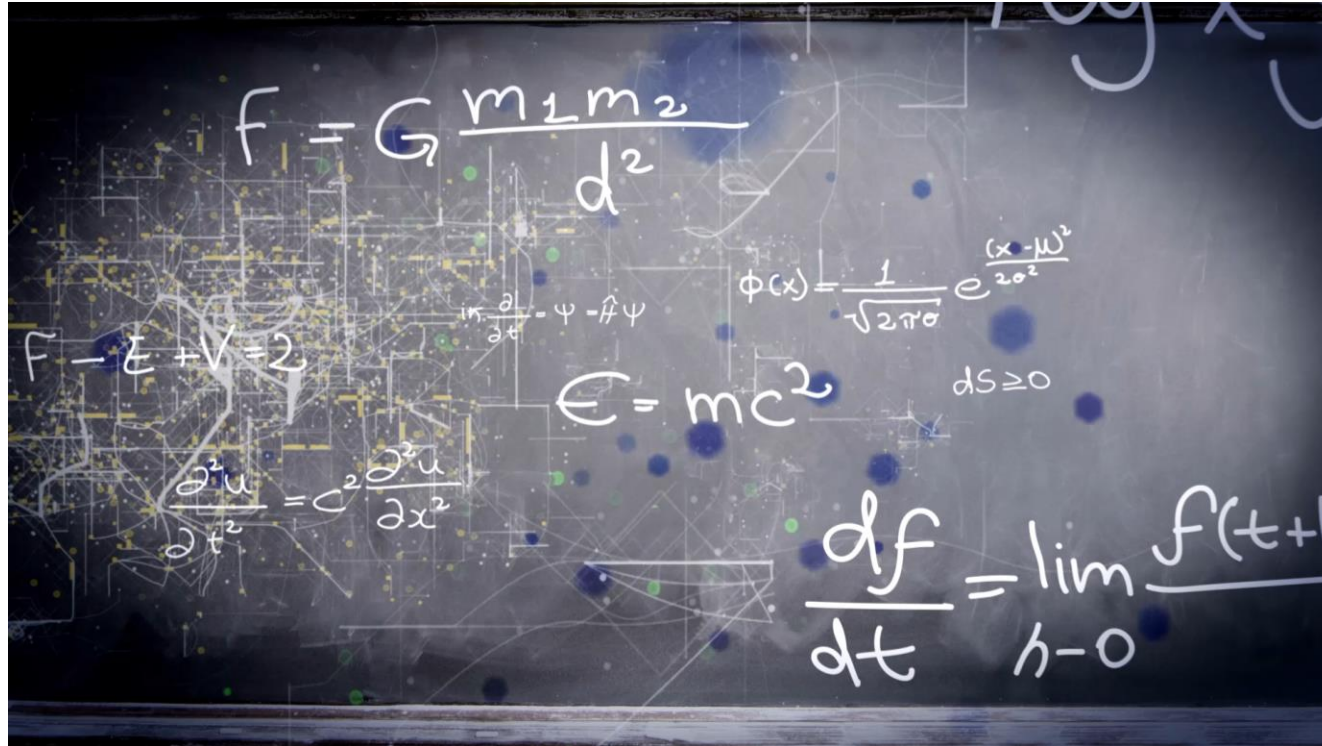 log x
F = G m1 m2 / d²
ϕ(x) = 1 / √2πσ e^(x-μ)² / 2σ²
iħ ∂/∂t - Ψ = Ĥ Ψ
F - E + V = 2
E = mc²
dS ≥ 0
∂²u / ∂t² = c² ∂²u / ∂x²
df / dt = lim h-0 f(t+